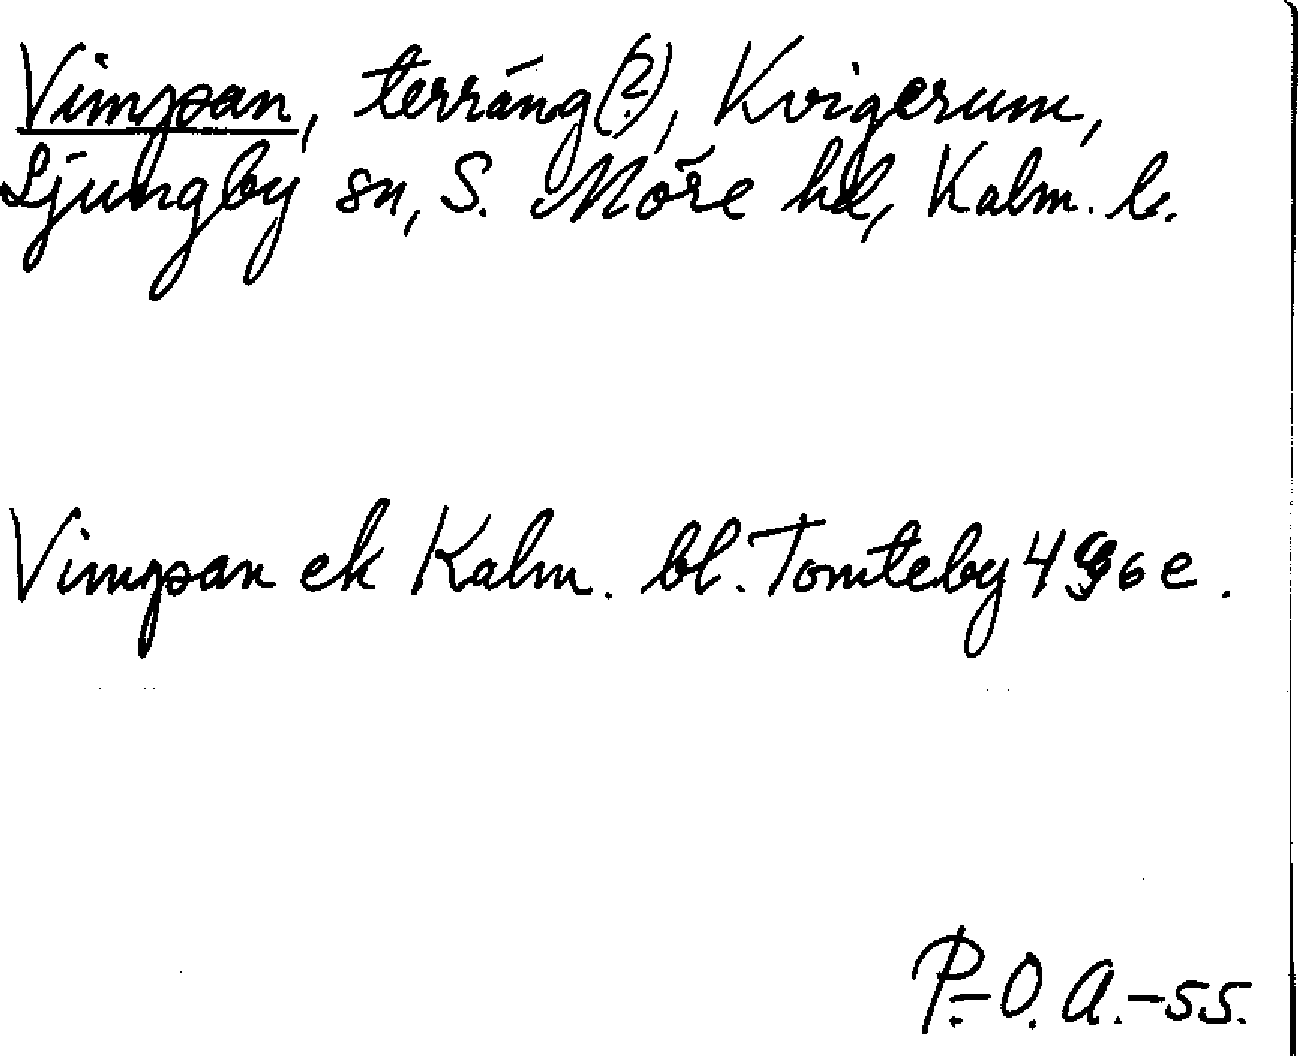 Vimpan, terräng(?), Kvigerum,
Ljungby sn, S. Möre hd, Kalm. l.
Vimpan ek Kalm. bl. Tomteby e.
P.-O. A.-55.